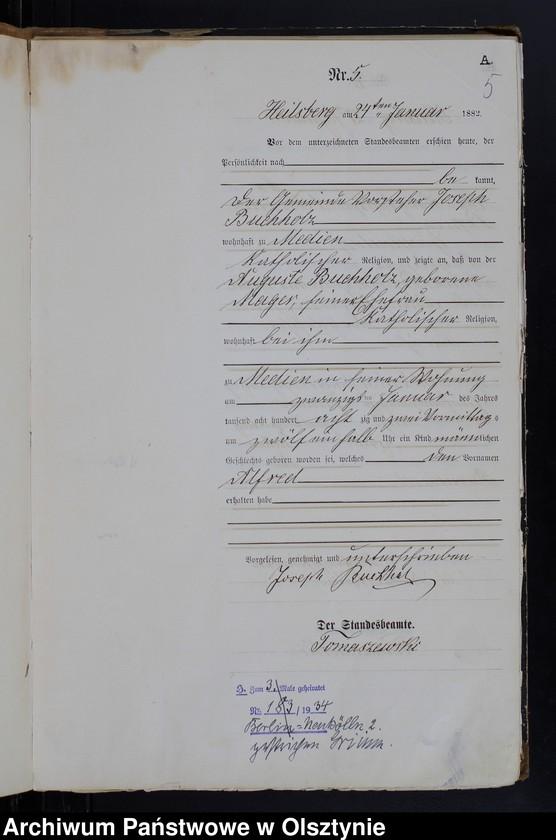 A.
Nr. 5.
5
Heilsberg am 24ten Januar 1882.
Vor dem unterzeichneten Standesbeamten erschien heute, der
Persönlichkeit nach
be kannt,
der Gemeinde Vorsteher Joseph
Buchholz
wohnhaft zu Medien
Katholischer Religion, und zeigte an, daß von der
Auguste Buchholz, geborene
Mager, seiner Ehefrau
Katholischer Religion,
wohnhaft bei ihm
zu Medien in seiner Wohnung
am zwanzigsten Januar des Jahres
tausend acht hundert acht zig und zwei Vormittags
um zwölf einhalb Uhr ein Kind männlichen
Geschlechts geboren worden sei, welches den Vornamen
Alfred
erhalten habe
Vorgelesen, genehmigt und unterschrieben
Joseph Buchholz
Der Standesbeamte.
Tomaszewski
H. Zum 3. Male geheiratet
Nr. 183/1934
Berlin-Neukölln 2.
gestrichen
Archiwum Państwowe w Olsztynie